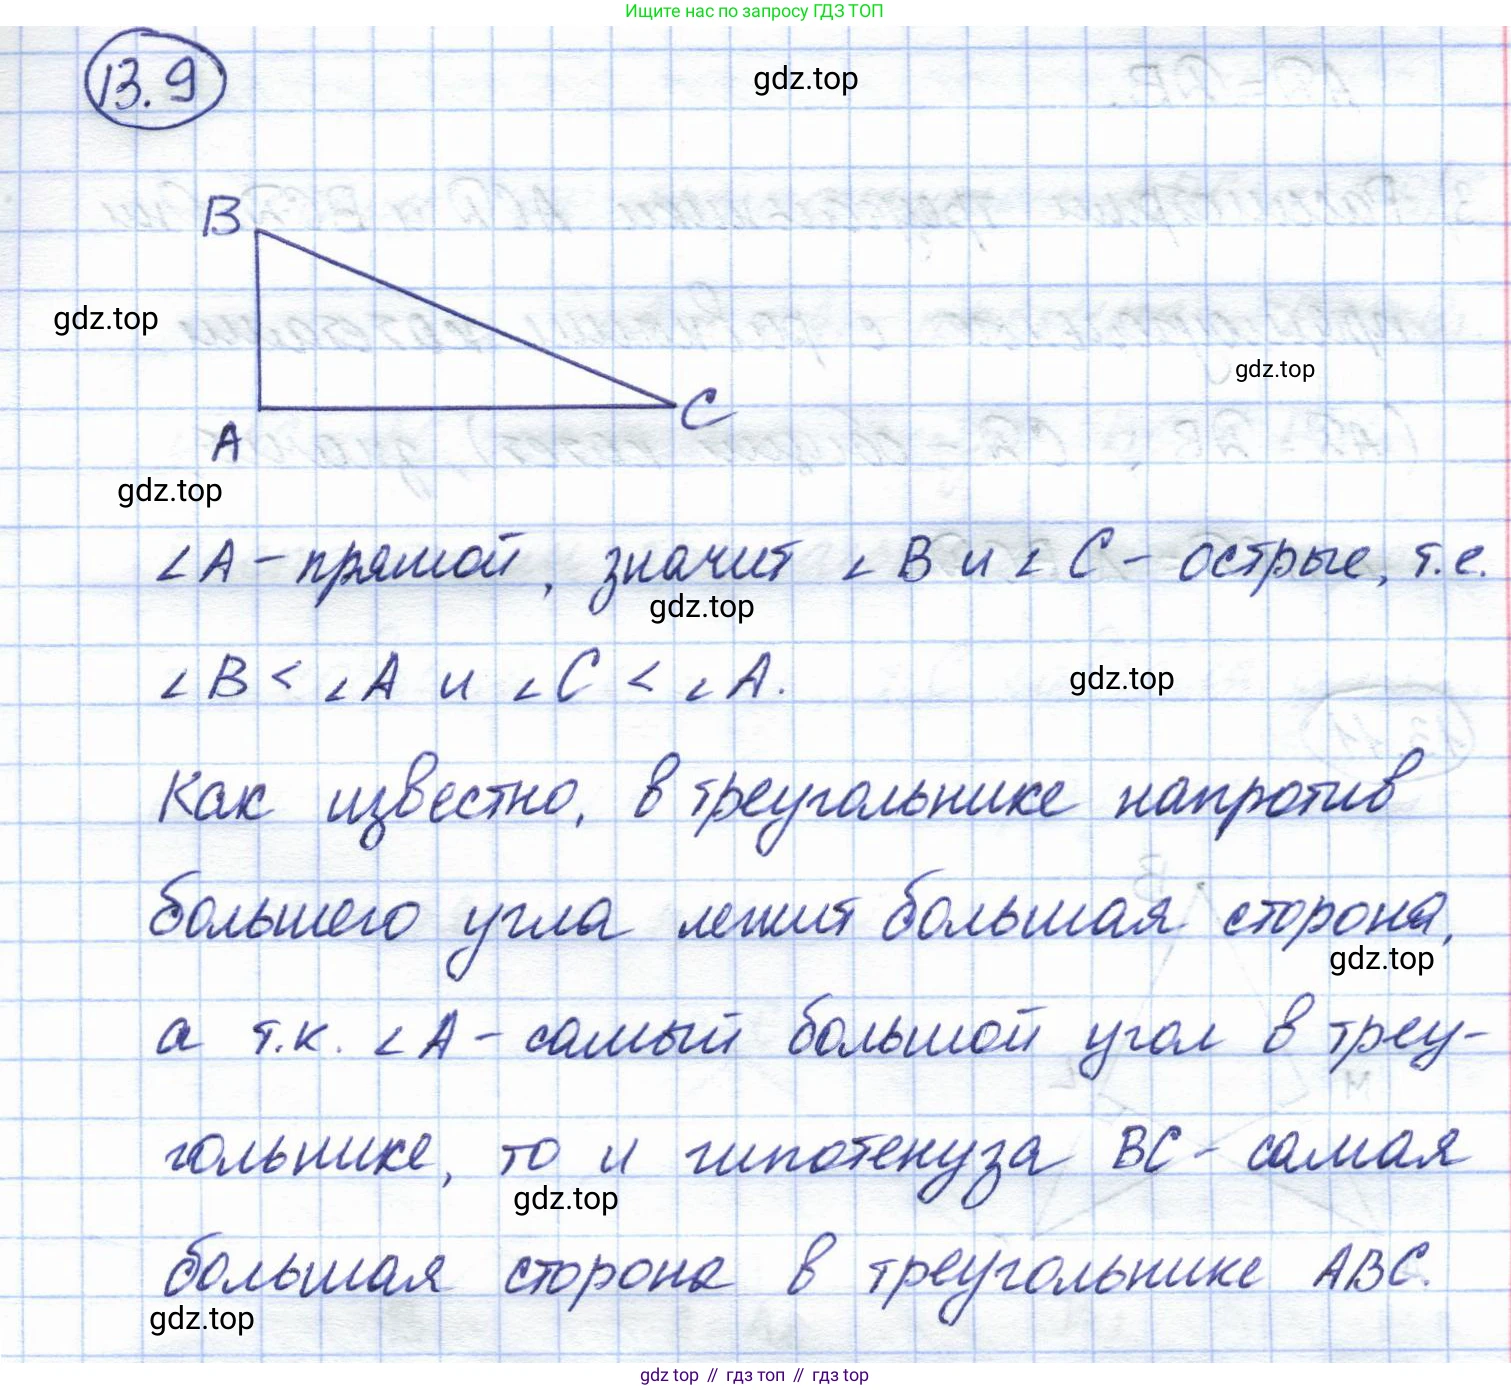 Ищите нас по запросу ГДЗ ТОП
13.9
gdz.top
B
gdz.top
gdz.top
C
A
gdz.top
∠A - прямой, значит ∠B и ∠C - острые, т.е.
gdz.top
∠B < ∠A и ∠C < ∠A.
gdz.top
Как известно, в треугольнике напротив
большего угла лежит большая сторона,
gdz.top
а т.к. ∠A - самый большой угол в треу-
гольнике, то и гипотенуза BC - самая
gdz.top
большая сторона в треугольнике ABC.
gdz.top
gdz top // гдз топ // гдз top